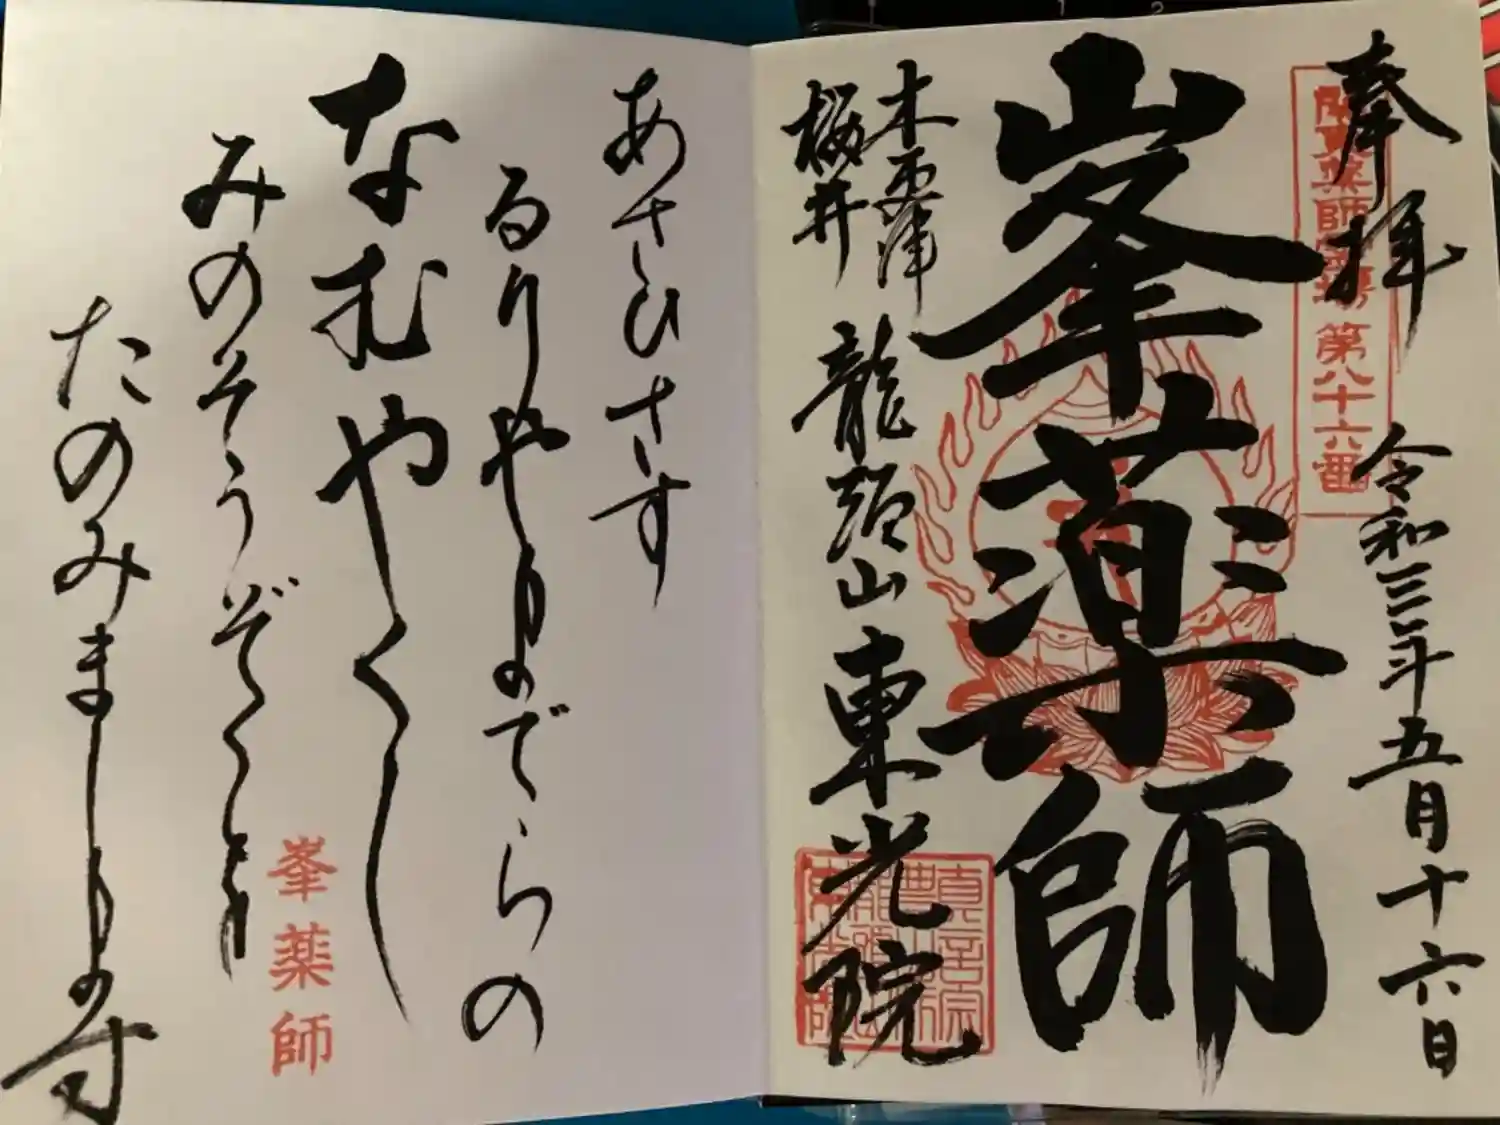 奉拝
令和三年五月十六日
関東薬師霊場第八十六番
峯薬師
木更津
桜井
龍頭山 東光院
あさひさす
るりややまでらの
なむやくし
みのそうぞくを
たのみまします
峯薬師